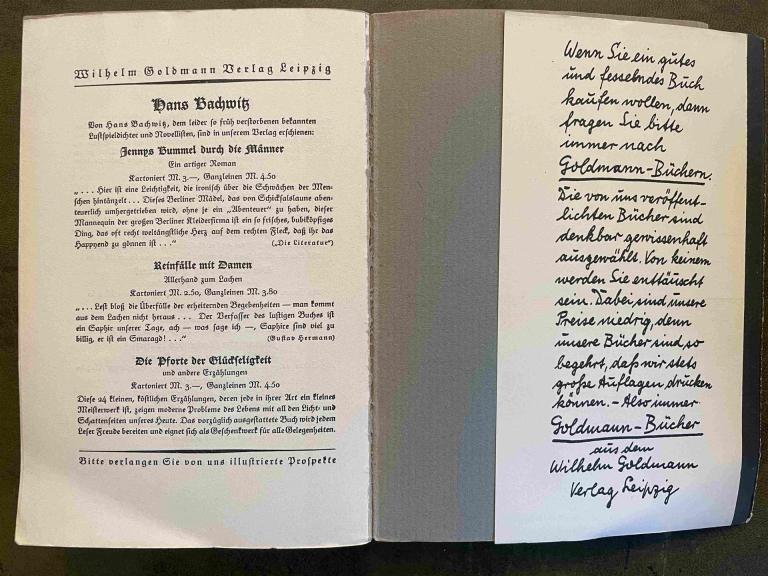 Wilhelm Goldmann Verlag Leipzig
Hans Bachwitz
Von Hans Bachwitz, dem leider so früh verstorbenen bekannten
Lustspieldichter und Novellisten, sind in unserem Verlag erschienen:
Jennys Bummel durch die Männer
Ein artiger Roman
Kartoniert M. 3.—, Ganzleinen M. 4.50
„... Hier ist eine Leichtigkeit, die ironisch über die Schwächen der Men-
schen hintänzelt... Dieses Berliner Mädel, das von Schicksalslaune aben-
teuerlich umhergetrieben wird, ohne je ein „Abenteuer“ zu haben, dieser
Mannequin der großen Berliner Kleiderfirma ist ein so frisches, bubiköpfiges
Ding, das oft recht weltängstliche Herz auf dem rechten Fleck, daß ihr das
Happyend zu gönnen ist...“ („Die Literatur“)
Reinfälle mit Damen
Allerhand zum Lachen
Kartoniert M. 2.50, Ganzleinen M. 3.80
„... Lest bloß die Überfülle der erheiternden Begebenheiten — man kommt
aus dem Lachen nicht heraus... Der Verfasser des lustigen Buches ist
ein Saphir unserer Tage, ach — was sage ich —, Saphire sind viel zu
billig, er ist ein Smaragd!...“ (Gustav Hermann)
Die Pforte der Glückseligkeit
und andere Erzählungen
Kartoniert M. 3.—, Ganzleinen M. 4.50
Diese 24 kleinen, köstlichen Erzählungen, deren jede in ihrer Art ein kleines
Meisterwerk ist, zeigen moderne Probleme des Lebens mit all den Licht- und
Schattenseiten unseres Heute. Das vorzüglich ausgestattete Buch wird jedem
Leser Freude bereiten und eignet sich als Geschenkwerk für alle Gelegenheiten.
Bitte verlangen Sie von uns illustrierte Prospekte
Wenn Sie ein gutes
und fesselndes Buch
kaufen wollen, dann
fragen Sie bitte
immer nach
Goldmann-Büchern.
Die von uns veröffent-
lichten Bücher sind
denkbar gewissenhaft
ausgewählt. Von keinem
werden Sie enttäuscht
sein. Dabei sind unsere
Preise niedrig, denn
unsere Bücher sind so
begehrt, daß wir stets
große Auflagen drucken
können. - Also immer
Goldmann-Bücher
aus dem
Wilhelm Goldmann
Verlag Leipzig